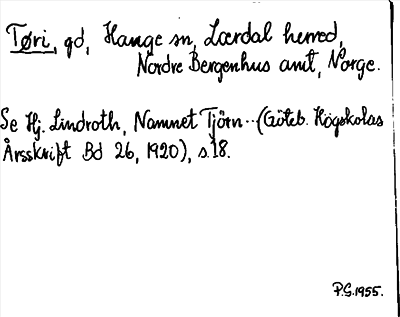 Tøri, gd, Hauge sn, Lærdal herred,
Nordre Bergenhus amt, Norge.
Se Hj. Lindroth, Namnet Tjörn..(Göteb. Högskolas
Årsskrift Bd 26, 1920), s.18.
P.G.1955.